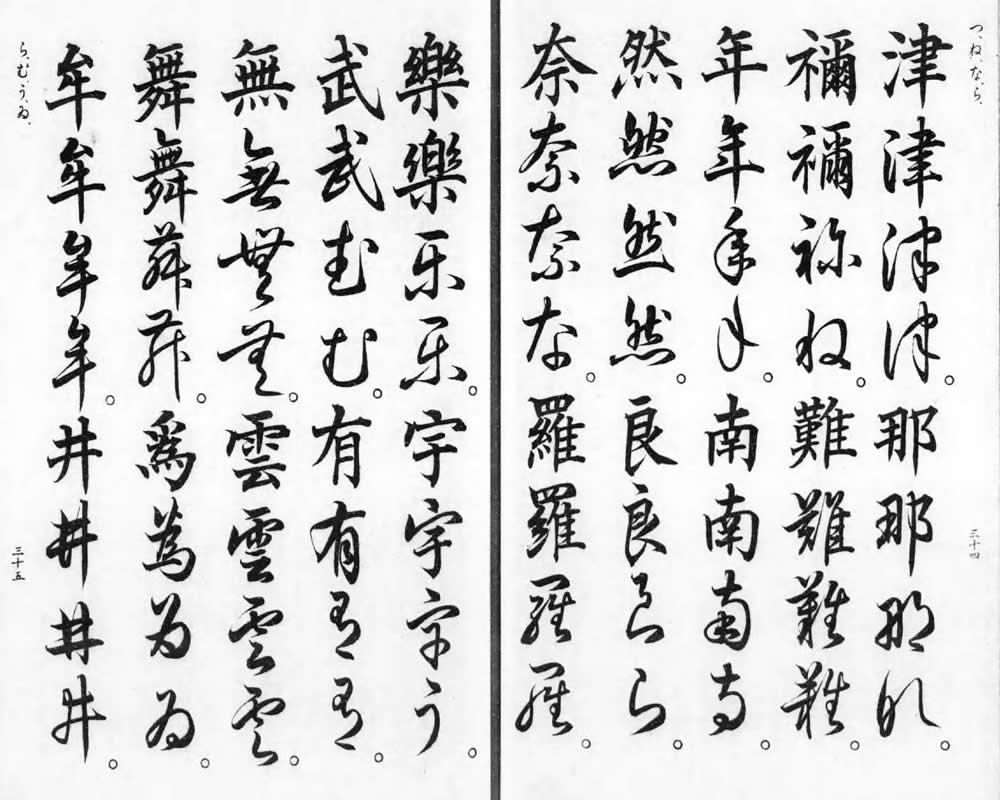 つ、ね、な、ら、
三十四
津津津津。那那那那。
禰禰祢ね。難難難難。
年年年年。南南南南。
然然然然。良良良ら。
奈奈奈な。羅羅羅羅。
樂樂乐乐。宇宇宇う。
武武武む。有有有有。
無無無無。雲雲雲雲。
舞舞舞舞。爲為為ゐ。
牟牟牟牟。井井井井。
ら、む、う、ゐ、
三十五